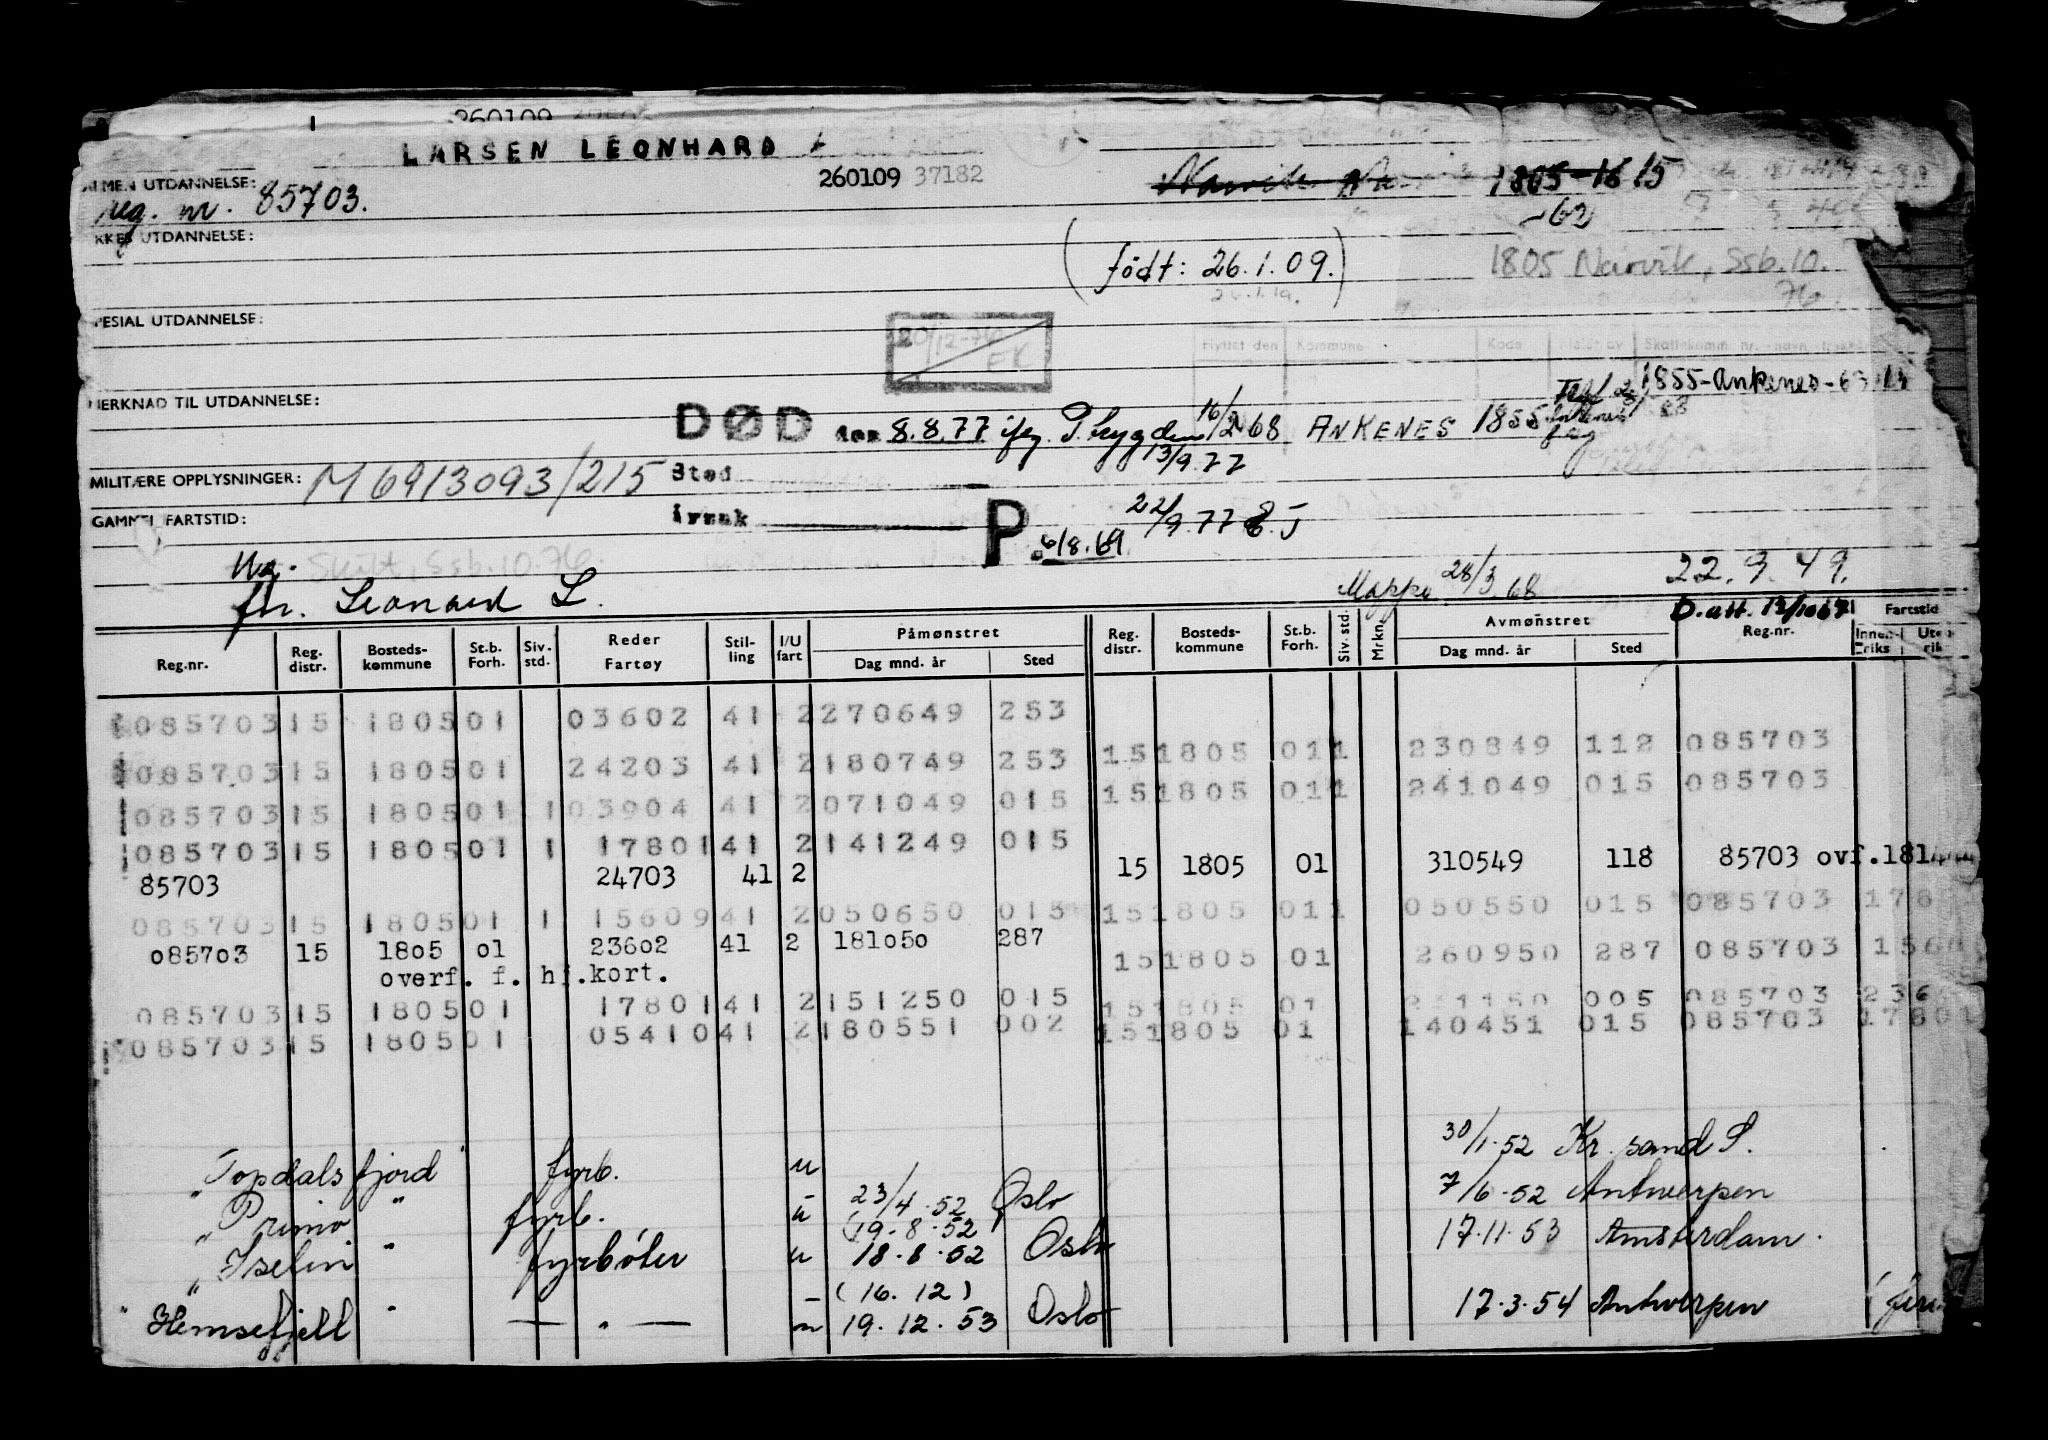 LARSEN LEONHARD
260109 37182
Narvik 1805-1615
-62
ALMEN UTDANNELSE:
Reg. nr. 85703.
UTDANNELSE:
(født: 26.1.09.)
1805 Narvik, Ssb.10.
76.
SPESIAL UTDANNELSE:
20/12-76
EK
Flyttet den Kommune Kode
MERKNAD TIL UTDANNELSE:
1855-Ankenes-63
DØD den 8.8.77 ifg. Trygden 16/2 68 ANKENES 1855
13/9.77
MILITÆRE OPPLYSNINGER: M6913093/215
Sted
GAMMEL FARTSTID:
årsak
P
22/9.77
6/8.69
Skilt, Ssb.10.76.
fhr. Leonard L.
Mappe 28/3 68
22.9.49.
D.att.
Reg.nr. Reg. distr. Bosteds-kommune St.b. Forh. Siv. std. Reder Fartøy Stil-ling I/U fart Påmønstret Dag mnd. år Sted Reg. distr. Bosteds-kommune St.b. Forh. Siv. std. Mrkn. Avmønstret Dag mnd. år Sted Reg.nr. Fartstid
085703 15 1805 01 03602 41 2 270649 253
15 1805 01 1 230849 112 085703
085703 15 1805 01 24203 41 2 180749 253
15 1805 01 1 241049 015 085703
085703 15 1805 01 1 03904 41 2 071049 015
085703 15 1805 01 1 17801 41 2 141249 015
85703 24703 41 2 15 1805 01 310549 118 85703 ovf.1814
085703 15 1805 01 1 15609 41 2 050650 015 15 1805 01 1 050550 015 085703 178
085703 15 1805 01 23602 41 2 181050 287
15 1805 01 260950 287 085703 156
overf. f. hj.kort.
085703 15 1805 01 17801 41 2 151250 015 15 1805 01 005 085703 236
085703 15 1805 01 05410 41 2 180551 002 15 1805 01 140451 015 085703 17801
"Topdalsfjord" fyrb. u 30/1.52 Kr. sand S.
"Primo" fyrb. u 23/4.52 Oslo 7/6.52 Antwerpen
(19.8.52
"Iselin" fyrbøter u 18.8.52 Oslo 17.11.53 Amsterdam.
(16.12)
"Hemsefjell" — " — 19.12.53 Oslo 17.3.54 Antwerpen